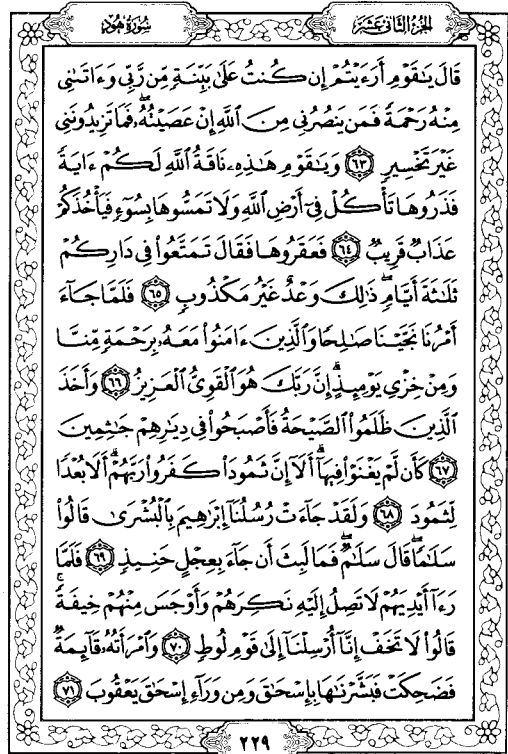 سُورَةُ هُودٍ
الجُزْءُ الثَّانِي عَشَرَ
قَالَ يَٰقَوْمِ أَرَءَيْتُمْ إِن كُنتُ عَلَىٰ بَيِّنَةٍ مِّن رَّبِّى وَءَاتَىٰنِى
مِنْهُ رَحْمَةً فَمَن يَنصُرُنِى مِنَ ٱللَّهِ إِنْ عَصَيْتُهُۥۖ فَمَا تَزِيدُونَنِى
غَيْرَ تَخْسِيرٍ ٦٣ وَيَٰقَوْمِ هَٰذِهِۦ نَاقَةُ ٱللَّهِ لَكُمْ ءَايَةً
فَذَرُوهَا تَأْكُلْ فِىٓ أَرْضِ ٱللَّهِ وَلَا تَمَسُّوهَا بِسُوٓءٍ فَيَأْخُذَكُمْ
عَذَابٌ قَرِيبٌ ٦٤ فَعَقَرُوهَا فَقَالَ تَمَتَّعُوا۟ فِى دَارِكُمْ
ثَلَٰثَةَ أَيَّامٍۖ ذَٰلِكَ وَعْدٌ غَيْرُ مَكْذُوبٍ ٦٥ فَلَمَّا جَآءَ
أَمْرُنَا نَجَّيْنَا صَٰلِحًا وَٱلَّذِينَ ءَامَنُوا۟ مَعَهُۥ بِرَحْمَةٍ مِّنَّا
وَمِنْ خِزْىِ يَوْمِئِذٍۗ إِنَّ رَبَّكَ هُوَ ٱلْقَوِىُّ ٱلْعَزِيزُ ٦٦ وَأَخَذَ
ٱلَّذِينَ ظَلَمُوا۟ ٱلصَّيْحَةُ فَأَصْبَحُوا۟ فِى دِيَٰرِهِمْ جَٰثِمِينَ
٦٧ كَأَن لَّمْ يَغْنَوْا۟ فِيهَآۗ أَلَآ إِنَّ ثَمُودَا۟ كَفَرُوا۟ رَبَّهُمْۗ أَلَا بُعْدًا
لِّثَمُودَ ٦٨ وَلَقَدْ جَآءَتْ رُسُلُنَآ إِبْرَٰهِيمَ بِٱلْبُشْرَىٰ قَالُوا۟
سَلَٰمًاۖ قَالَ سَلَٰمٌۖ فَمَا لَبِثَ أَن جَآءَ بِعِجْلٍ حَنِيذٍ ٦٩ فَلَمَّا
رَءَآ أَيْدِيَهُمْ لَا تَصِلُ إِلَيْهِ نَكِرَهُمْ وَأَوْجَسَ مِنْهُمْ خِيفَةًۚ
قَالُوا۟ لَا تَخَفْ إِنَّآ أُرْسِلْنَآ إِلَىٰ قَوْمِ لُوطٍ ٧٠ وَٱمْرَأَتُهُۥ قَآئِمَةٌ
فَضَحِكَتْ فَبَشَّرْنَٰهَا بِإِسْحَٰقَ وَمِن وَرَآءِ إِسْحَٰقَ يَعْقُوبَ ٧١
٢٢٩